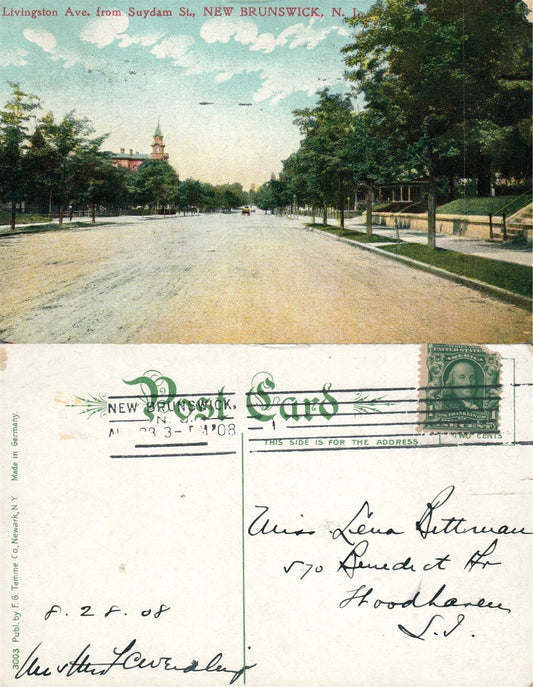 Livingston Ave. from Suydam St., NEW BRUNSWICK, N. J.
Post Card
NEW BRUNSWICK,
N. J.
'08
UNITED STATES
AMERICA
THIS SIDE IS FOR THE ADDRESS
TWO CENTS
Miss Lena Bitterman
570 Benedict Av
Woodhaven
L.I.
8. 28. 08
Mr & Mrs
3003 Publ. by F. G. Temme Co, Newark, N.Y. Made in Germany.